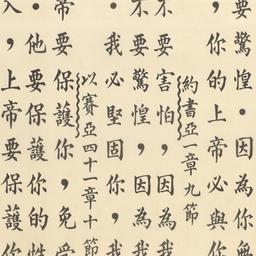 要驚惶・因為你無
，你的上帝必與你
約書亞一章九節
不要害怕，因為我
不要驚惶，因為我
・我必堅固你，我
以賽亞四十一章十節
帝要保護你，免受
，他要保護你的性
入，上帝要保護你